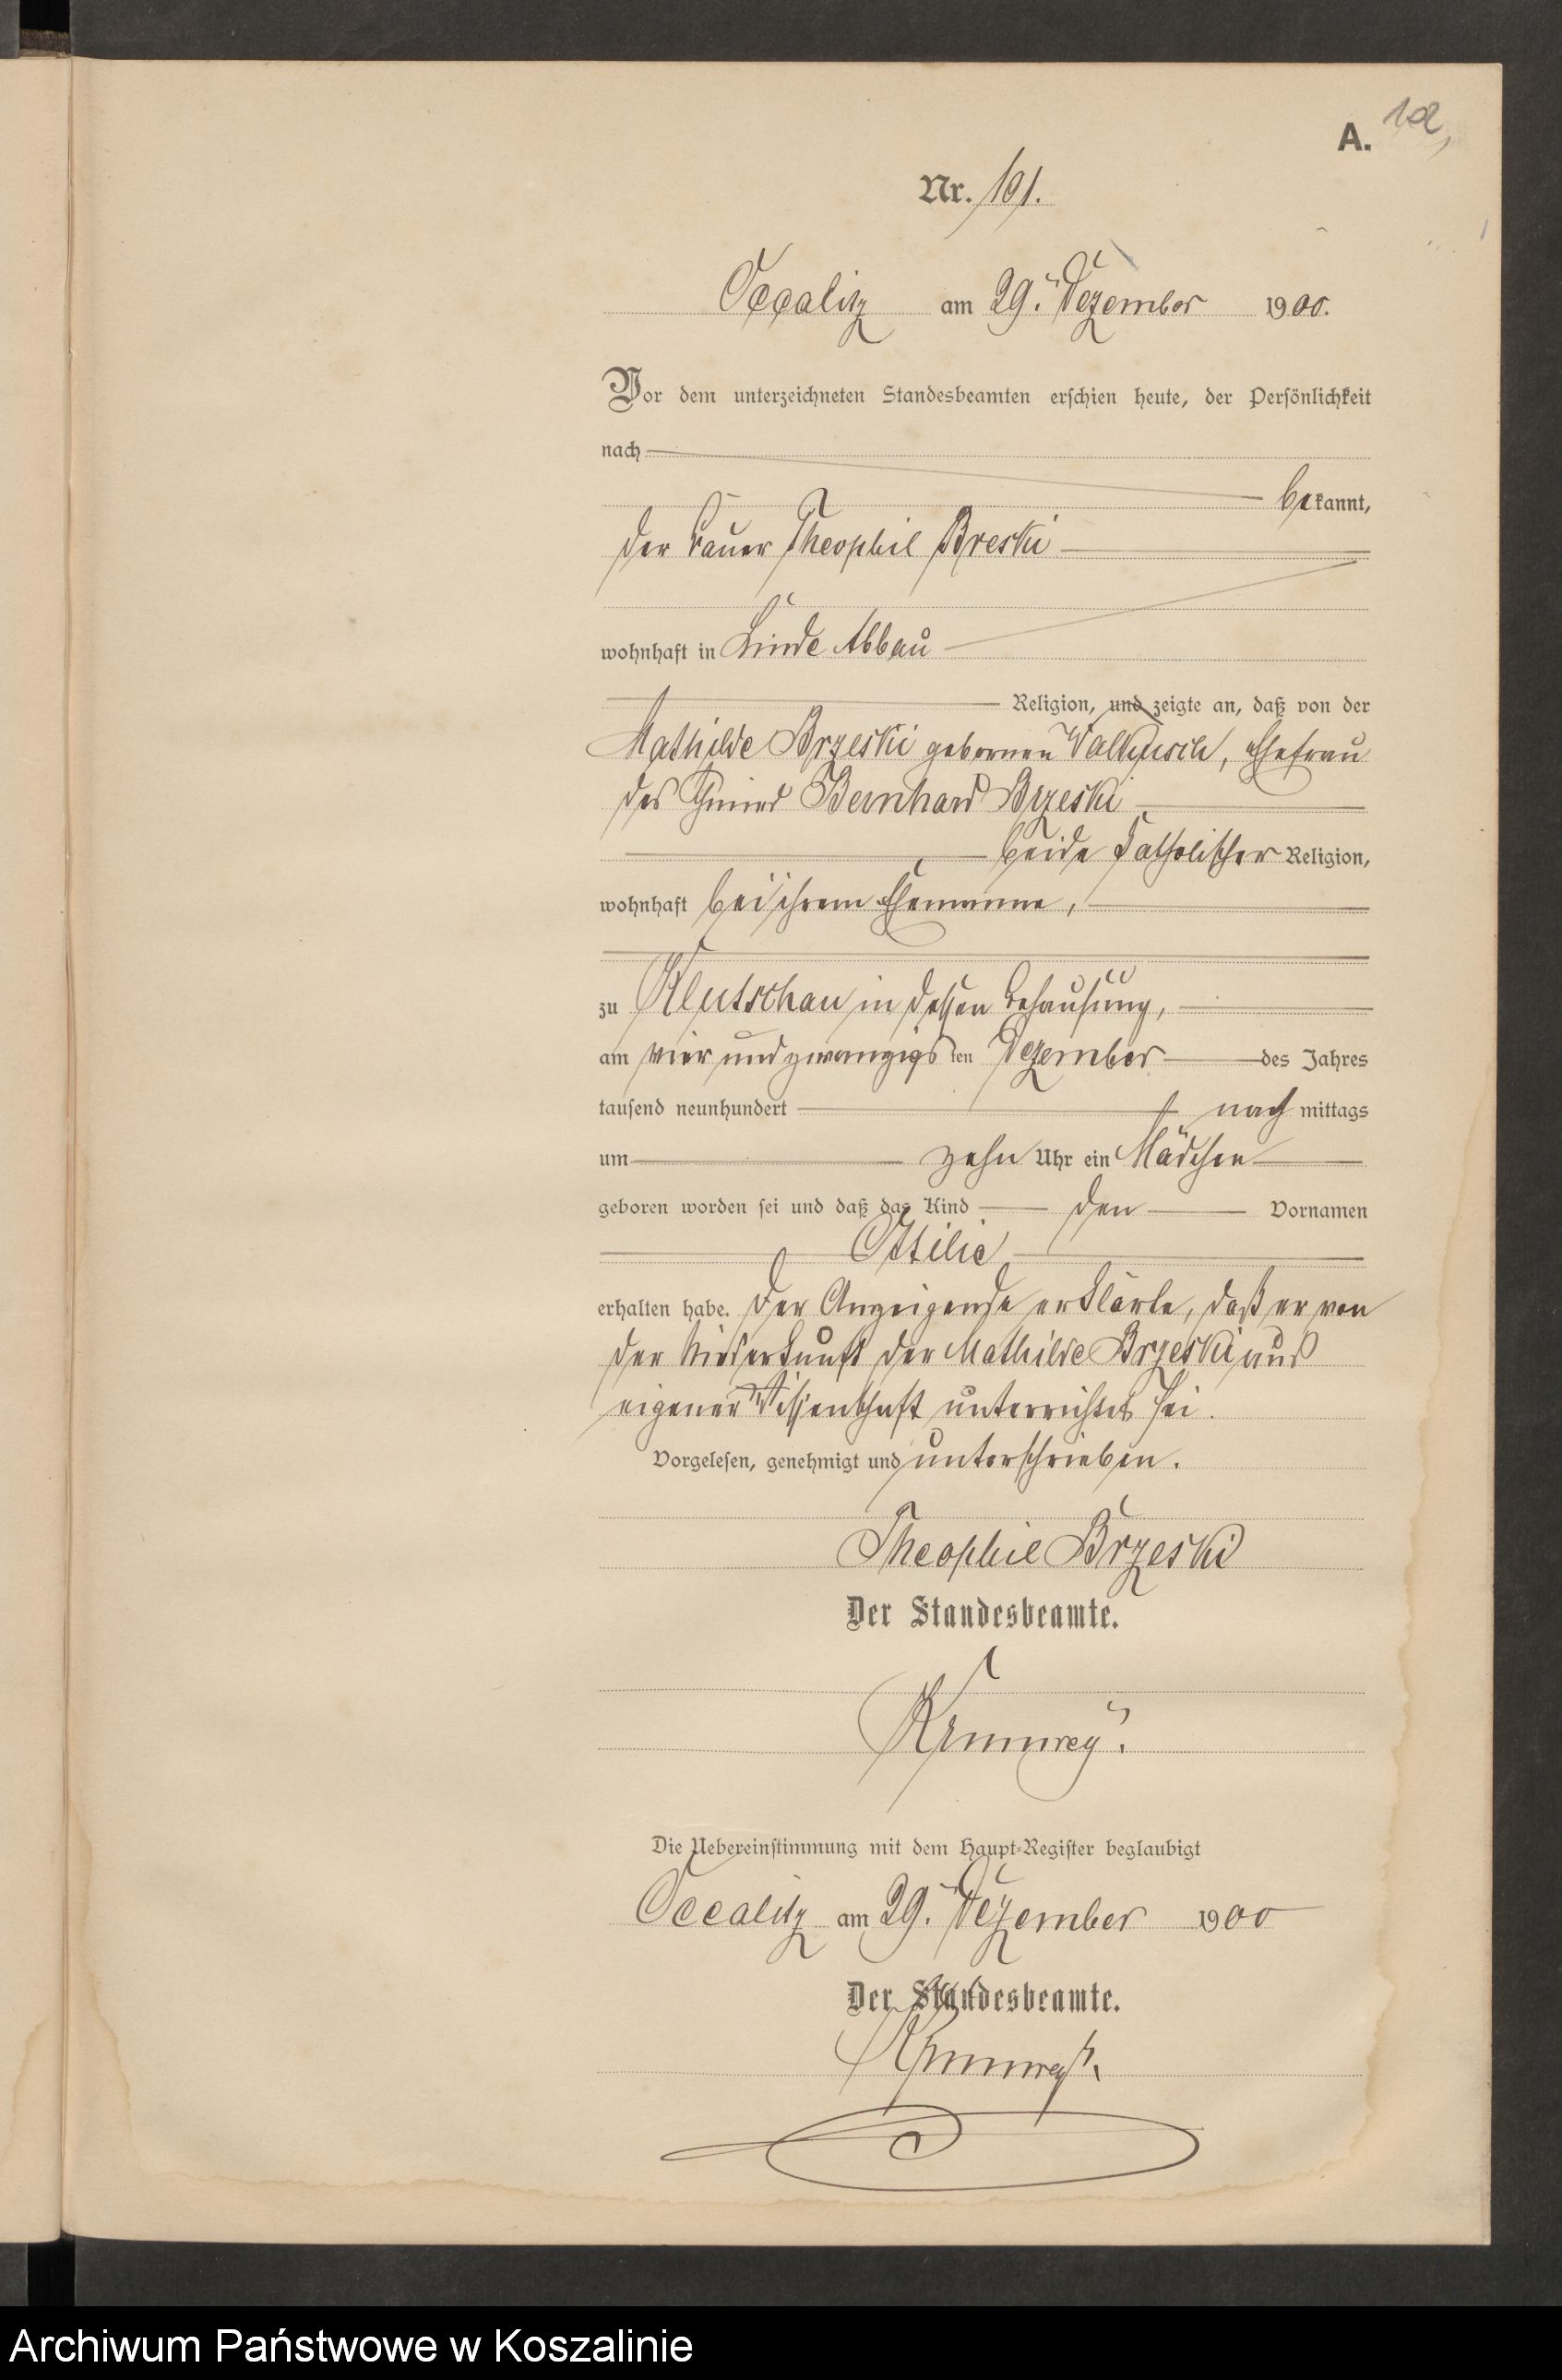 A.
Nr. 101.
Occalitz am 29. Dezember 1900.
Vor dem unterzeichneten Standesbeamten erschien heute, der Persönlichkeit
nach
bekannt,
der Bauer Theophil Breski
wohnhaft in Linde Abbau
Religion, und zeigte an, daß von der
Mathilde Brzeski gebornen Ehefrau
des Bernhard Brzeski
beide katholischer Religion,
wohnhaft bei ihrem Ehemanne,
zu Klutschau in dessen Behausung,
am vier und zwanzigsten Dezember des Jahres
tausend neunhundert nachmittags
um zehn Uhr ein Mädchen
geboren worden sei und daß das Kind den Vornamen
Ottilie
erhalten habe. Der Anzeigende erklärte, daß er von
der Niederkunft der Mathilde Brzeski aus
eigener Wissenschaft unterrichtet sei.
Vorgelesen, genehmigt und unterschrieben.
Theophil Brzeski
Der Standesbeamte.
Die Uebereinstimmung mit dem Haupt-Register beglaubigt
Occalitz am 29. Dezember 1900
Der Standesbeamte.
Archiwum Państwowe w Koszalinie